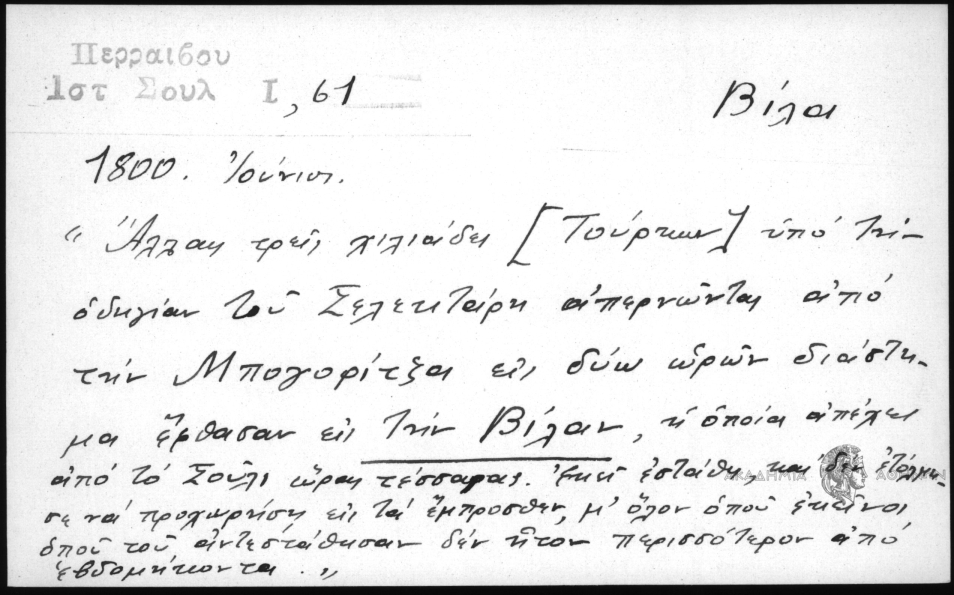 Περραιβου
Ιστ Σουλ Ι, 61
Βίλα
1800. Ἰούνιος.
"Ἄλλαι τρεῖς χιλιάδες [Τούρκων] ὑπό τήν
ὁδηγίαν τοῦ Σελεκτάρη ἀπερνῶντας ἀπό
τήν Μπογορίτζα εἰς δύω ὡρῶν διάστη-
μα ἔφθασαν εἰς τήν Βίλαν, ἡ ὁποία ἀπέχει
ἀπό τό Σοῦλι ὥρας τέσσαρας. Ἐκεῖ ἐστάθη, καί δέν ἐτόλμη-
σε νά προχωρήσῃ εἰς τά ἔμπροσθεν, μ' ὅλον ὁποῦ ἐκεῖνοι
ὁποῦ τοῦ ἀντεστάθησαν δέν ἦτον περισσότερον ἀπό
ἑβδομήκοντα."
ΑΚΑΔΗΜΙΑ ΑΘΗΝΩΝ